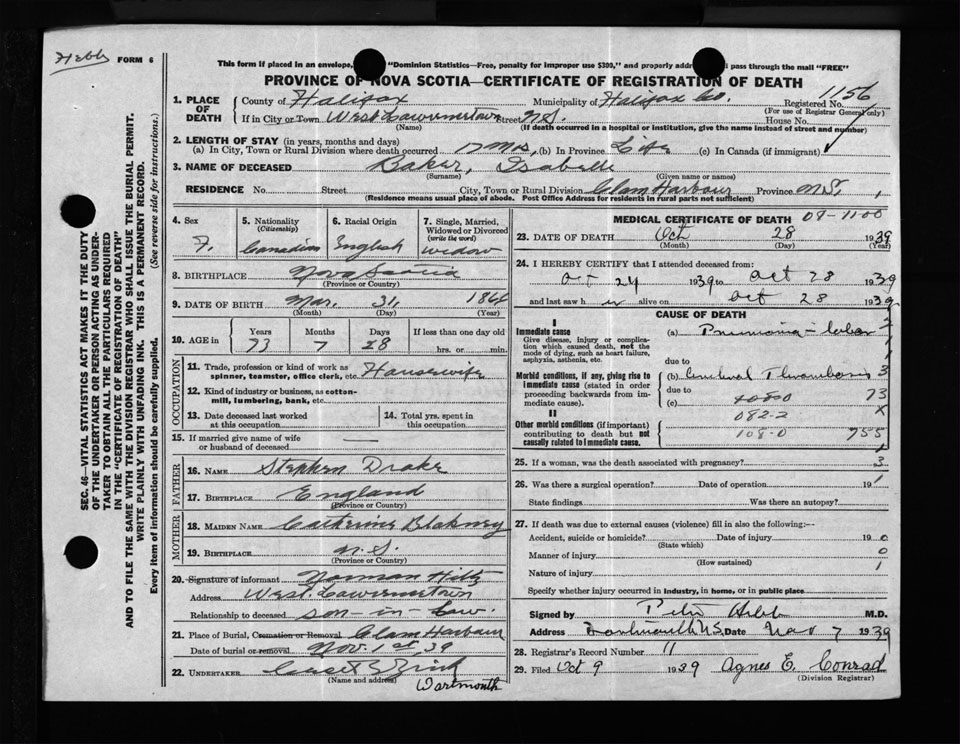 Hebb
FORM 6
This form if placed in an envelope, "Dominion Statistics—Free, penalty for improper use $300," and properly addre pass through the mail "FREE"
PROVINCE OF NOVA SCOTIA—CERTIFICATE OF REGISTRATION OF DEATH
1156
1. PLACE OF DEATH
County of Halifax Municipality of Halifax Co. Registered No.
(For use of Registrar General only)
If in City or Town West Lawrencetown Street N.S. House No.
(Name) (If death occurred in a hospital or institution, give the name instead of street and number)
2. LENGTH OF STAY (in years, months and days)
(a) In City, Town or Rural Division where death occurred 7 mos. (b) In Province Life (c) In Canada (if immigrant)
3. NAME OF DECEASED Baker, Isabelle
(Surname) (Given name or names)
RESIDENCE No. Street City, Town or Rural Division Clam Harbour Province N.S.
(Residence means usual place of abode. Post Office Address for residents in rural parts not sufficient)
4. Sex F.
5. Nationality (Citizenship) Canadian
6. Racial Origin English
7. Single, Married, Widowed or Divorced (write the word) Widow
8. BIRTHPLACE Nova Scotia
(Province or Country)
9. DATE OF BIRTH Mar. 31, 1866
(Month) (Day) (Year)
10. AGE in
Years Months Days If less than one day old
73 7 28 hrs. or min.
OCCUPATION
11. Trade, profession or kind of work as spinner, teamster, office clerk, etc. Housewife
12. Kind of industry or business, as cotton-mill, lumbering, bank, etc.
13. Date deceased last worked at this occupation
14. Total yrs. spent in this occupation
15. If married give name of wife or husband of deceased —
FATHER
16. NAME Stephen Drake
17. BIRTHPLACE England
(Province or Country)
MOTHER
18. MAIDEN NAME Catherine Blakney
19. BIRTHPLACE N.S.
(Province or Country)
20. Signature of informant Norman Hiltz
Address West Lawrencetown
Relationship to deceased son-in-law.
21. Place of Burial, Cremation or Removal Clam Harbour
Date of burial or removal Nov. 1st 39
22. UNDERTAKER
(Name and address)
Dartmouth
MEDICAL CERTIFICATE OF DEATH 08-11-00
23. DATE OF DEATH Oct 28 1939
(Month) (Day) (Year)
24. I HEREBY CERTIFY that I attended deceased from:
Oct 24 1939 to Oct 28 1939
and last saw her alive on Oct 28 1939
CAUSE OF DEATH
I
Immediate cause
Give disease, injury or complication which caused death, not the mode of dying, such as heart failure, asphyxia, asthenia, etc.
(a) Pneumonia - lobar
due to
Morbid conditions, if any, giving rise to immediate cause (stated in order proceeding backwards from immediate cause).
(b) Cerebral Thrombosis
due to
(c)
082-2
II
Other morbid conditions (if important) contributing to death but not causally related to immediate cause.
108-0
755
25. If a woman, was the death associated with pregnancy?
26. Was there a surgical operation? Date of operation 19
State findings Was there an autopsy?
27. If death was due to external causes (violence) fill in also the following:—
Accident, suicide or homicide? Date of injury 19
(State which)
Manner of injury
(How sustained)
Nature of injury
Specify whether injury occurred in industry, in home, or in public place
Signed by Peter Hebb M.D.
Address Dartmouth N.S. Date Nov 7 1939
28. Registrar's Record Number 11
29. Filed Oct 9 1939 Agnes E. Conrad
(Division Registrar)
SEC. 46—VITAL STATISTICS ACT MAKES IT THE DUTY
OF THE UNDERTAKER OR PERSON ACTING AS UNDERTAKER TO OBTAIN ALL THE PARTICULARS REQUIRED
IN THE "CERTIFICATE OF REGISTRATION OF DEATH"
AND TO FILE THE SAME WITH THE DIVISION REGISTRAR WHO SHALL ISSUE THE BURIAL PERMIT.
WRITE PLAINLY WITH UNFADING INK. THIS IS A PERMANENT RECORD.
Every item of information should be carefully supplied. (See reverse side for instructions.)